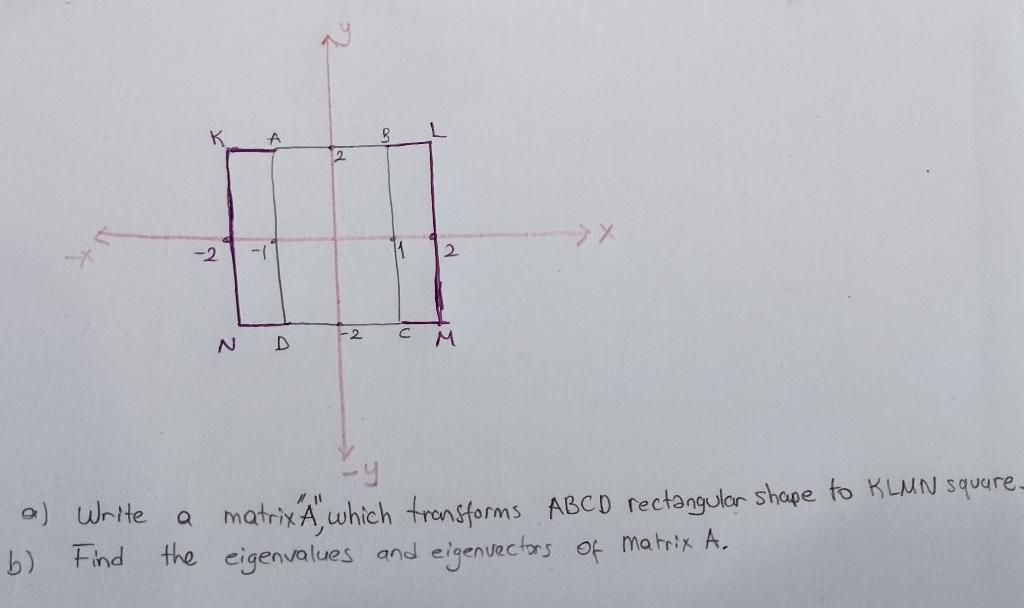 y
K A B L
2
-x -2 -1 1 2 x
N D -2 C M
-y
a) Write a matrix "A", which transforms ABCD rectangular shape to KLMN square.
b) Find the eigenvalues and eigenvectors of matrix A.